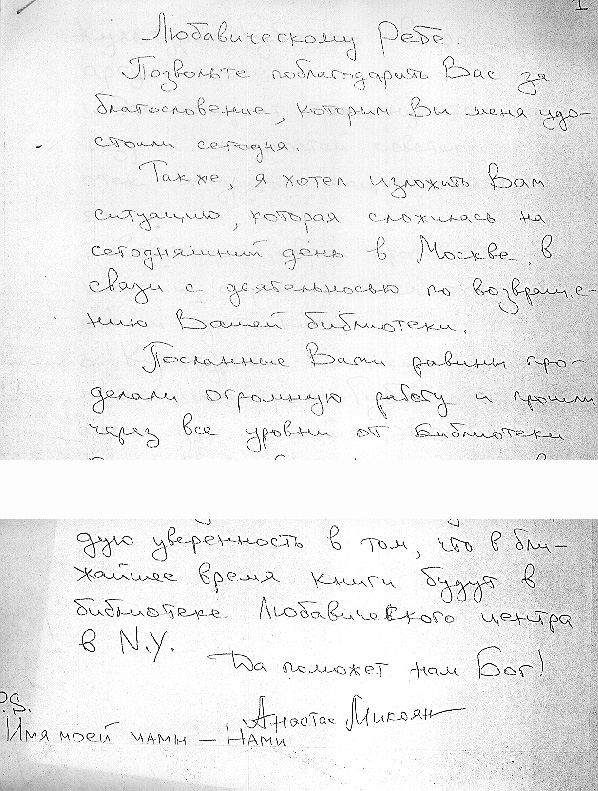 1
Любавическому Ребе.
Позвольте поблагодарить Вас за
благословение, которым Вы меня удо-
стоили сегодня.
Также, я хотел изложить Вам
ситуацию, которая сложилась на
сегодняшний день в Москве, в
связи с деятельностью по возвраще-
нию Вашей библиотеки.
Посланные Вами равины про-
делали огромную работу и прошли
через все уровни от Библиотеки
дую уверенность в том, что в бли-
жайшее время книги будут в
библиотеке Любавического центра
в N.Y.
Да поможет нам Бог!
Анастас Микоян
P.S.
Имя моей мамы — Нами